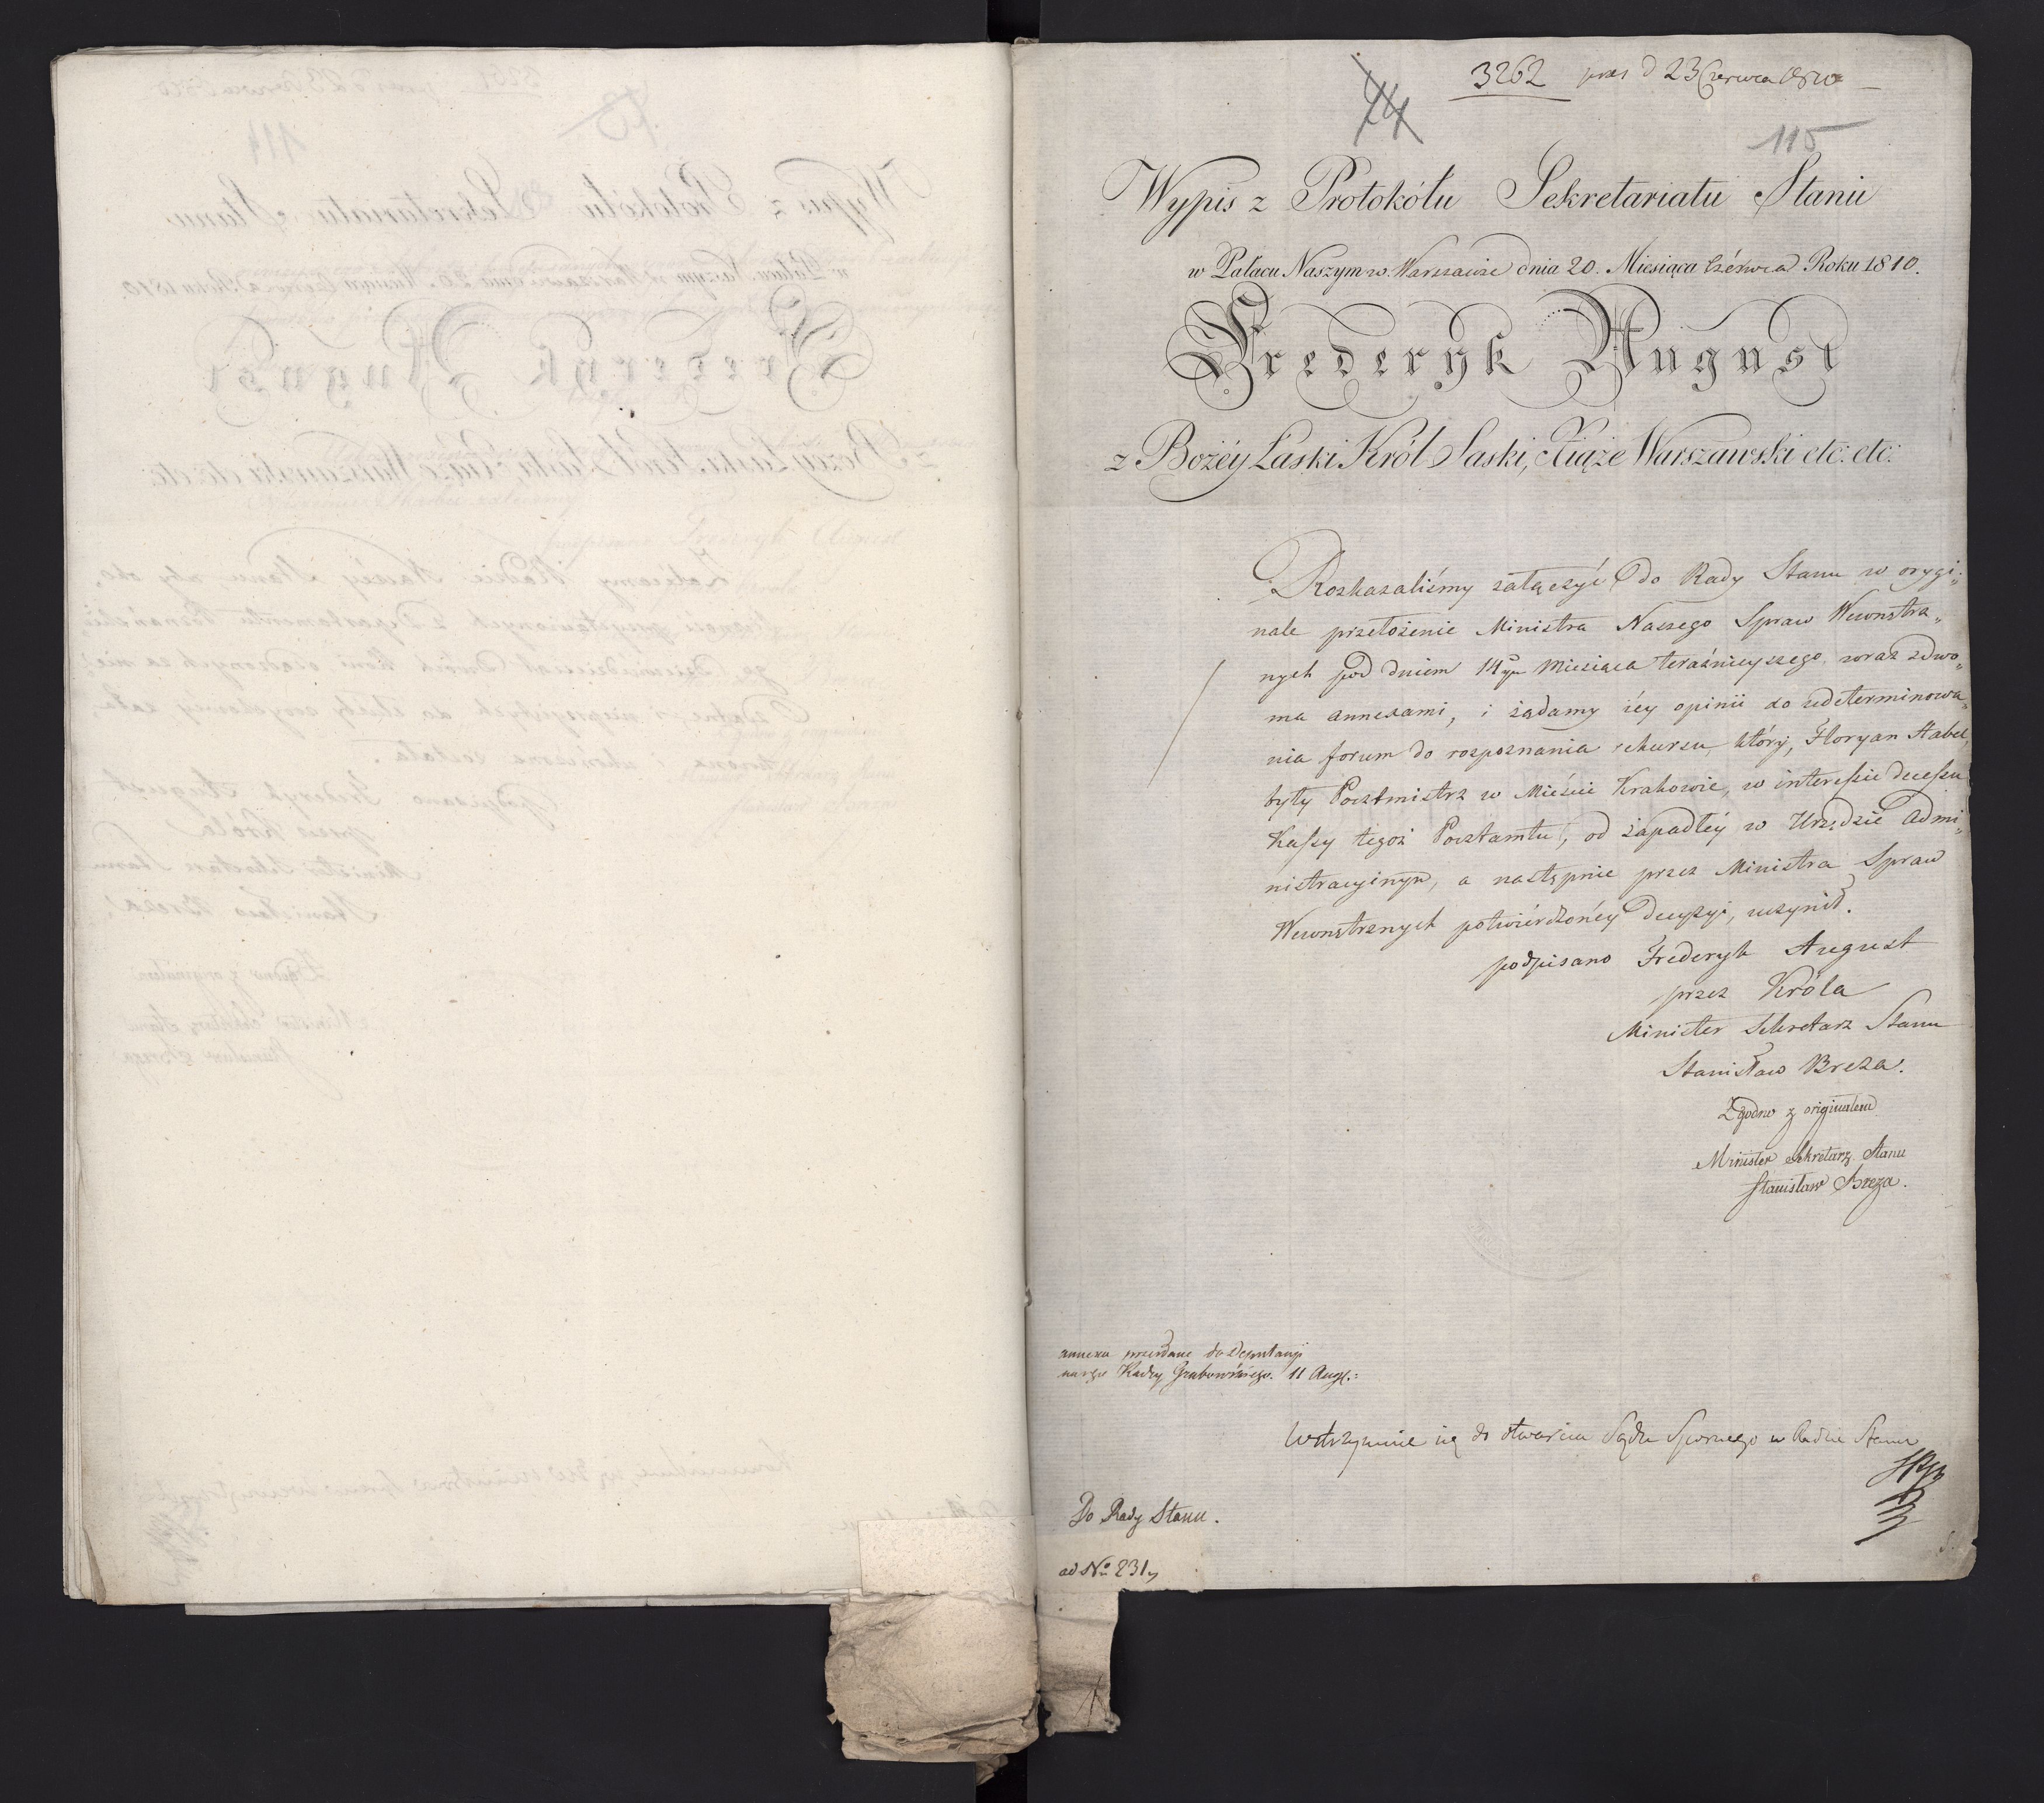 3262 pres d 23 Czerwca 1810
74
115
Wypis z Protokółu Sekretariatu Stanu
w Pałacu Naszym w Warszawie dnia 20. Miesiąca Czérwca Roku 1810.
Frederyk August
z Bożéy Łaski Król Saski, Xiąże Warszawski etc: etc:
Rozkazaliśmy załączyć do Rady Stanu w orygi„
nale przełożenie Ministra Naszego Spraw Wewnętrz„
nych pod dniem 14go Miesiąca teraźnieyszego, wraz z dwo„
ma annexami, i żądamy iéy opinii do zdeterminowa„
nia forum do rozpoznania rekursu, który, Floryan Habel,
były Pocztmistrz w Mieście Krakowie, w interessie decessu
Kassy tegoż Pocztamtu, od zapadłéy w Urzędzie Admi„
nistracyinym, a następnie przez Ministra Spraw
Wewnętrznych potwiérdzonéy decyzyi, uczynił.
podpisano Frederyk August
przez Króla
Minister Sekretarz Stanu
Stanisław Breza.
Zgodno z originałem
Minister Sekretarz Stanu
Stanisław Breza.
annexa przesłane do Deputacyi
Radcy Grabowskiego. 11 Aug.:
Wstrzymać się do otwarcia Sądu Spornego w Radzie Stanu
Do Rady Stanu.
ad No 231,